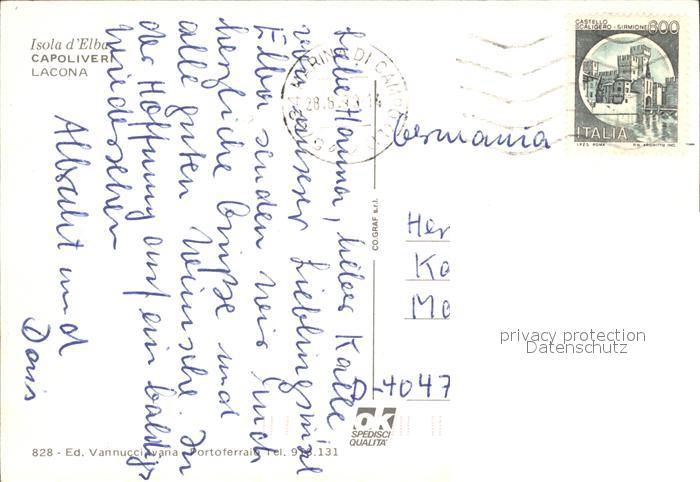 Isola d'Elba
CAPOLIVERI
LACONA
Liebe Hanna, lieber Kalle
von unserer Lieblingsinsel
Elba senden wir Euch
herzliche Grüße und
alle guten Wünsche. In
der Hoffnung auf ein baldiges
Wiedersehen
Albrecht und
Doris
MARINA DI CAMPO
28.6.
CASTELLO
SCALIGERO - SIRMIONE
600
ITALIA
I.P.Z.S. ROMA
Germania
Her
Ka
Mo
D-4047
CO.GRAF s.r.l.
privacy protection
Datenschutz
ok
SPEDISCI
QUALITA'
828 - Ed. Vannucci Portoferraio Tel.